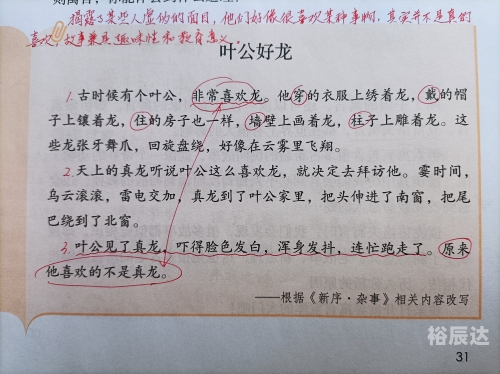 揭露了某些人虚伪的面目，他们好像很喜欢某种事物，其实并不是真的
喜欢，故事兼具趣味性和教育意义。
叶公好龙
1. 古时候有个叶公，非常喜欢龙。他穿的衣服上绣着龙，戴的帽
子上镶着龙，住的房子也一样，墙壁上画着龙，柱子上雕着龙。这
些龙张牙舞爪，回旋盘绕，好像在云雾里飞翔。
2. 天上的真龙听说叶公这么喜欢龙，就决定去拜访他。霎时间，
乌云滚滚，雷电交加，真龙到了叶公家里，把头伸进了南窗，把尾
巴绕到了北窗。
3. 叶公见了真龙，吓得脸色发白，浑身发抖，连忙跑走了。原来
他喜欢的不是真龙。
——根据《新序·杂事》相关内容改写
裕辰达
31